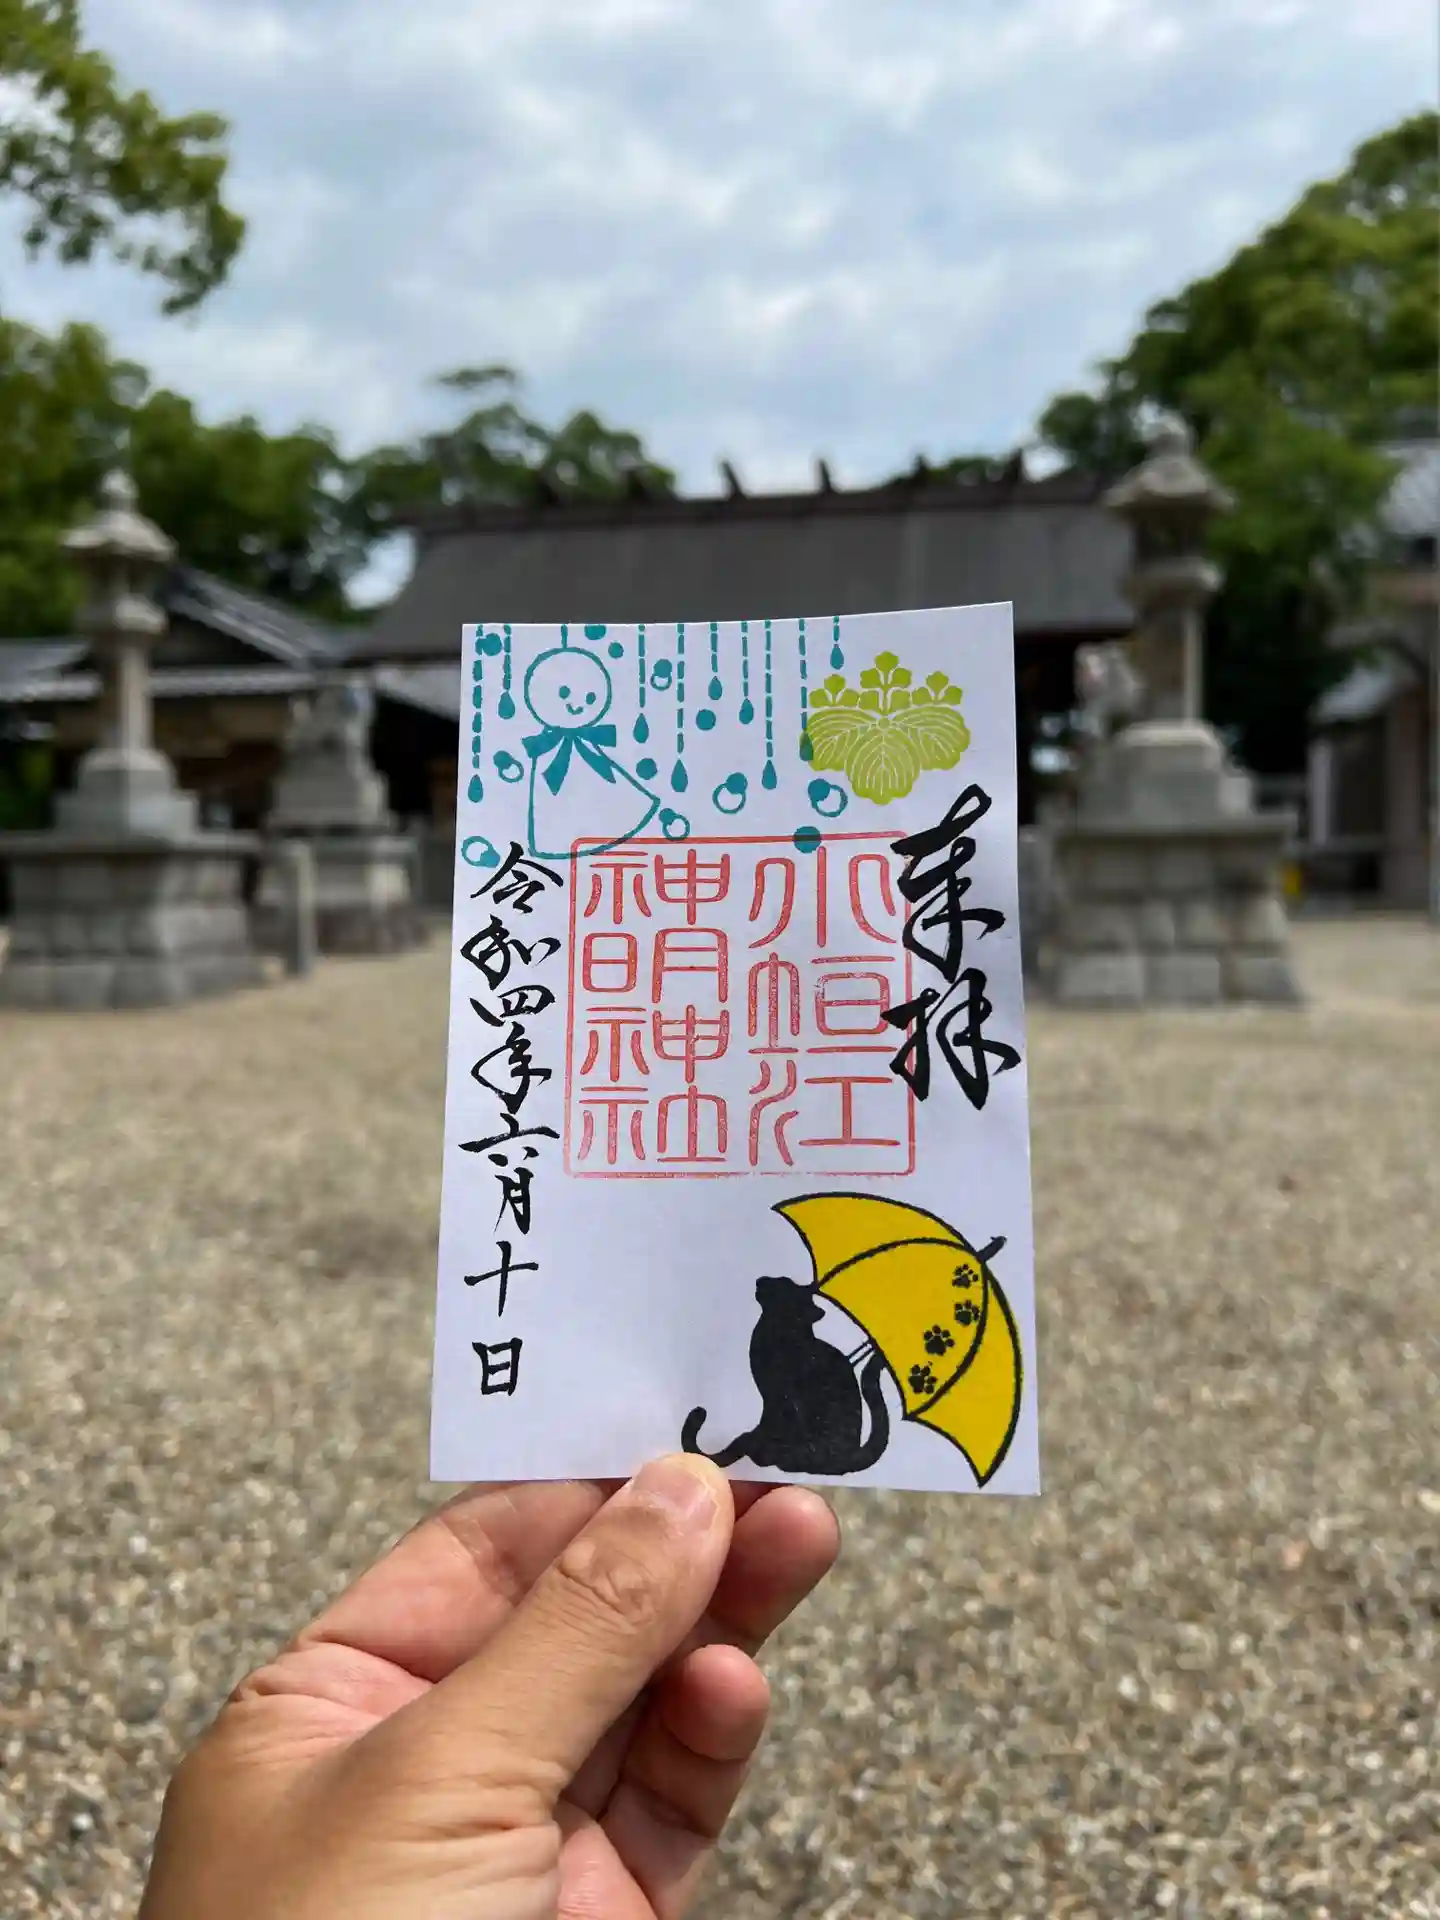 奉拝
小垣江
神明神社
令和四年六月十日